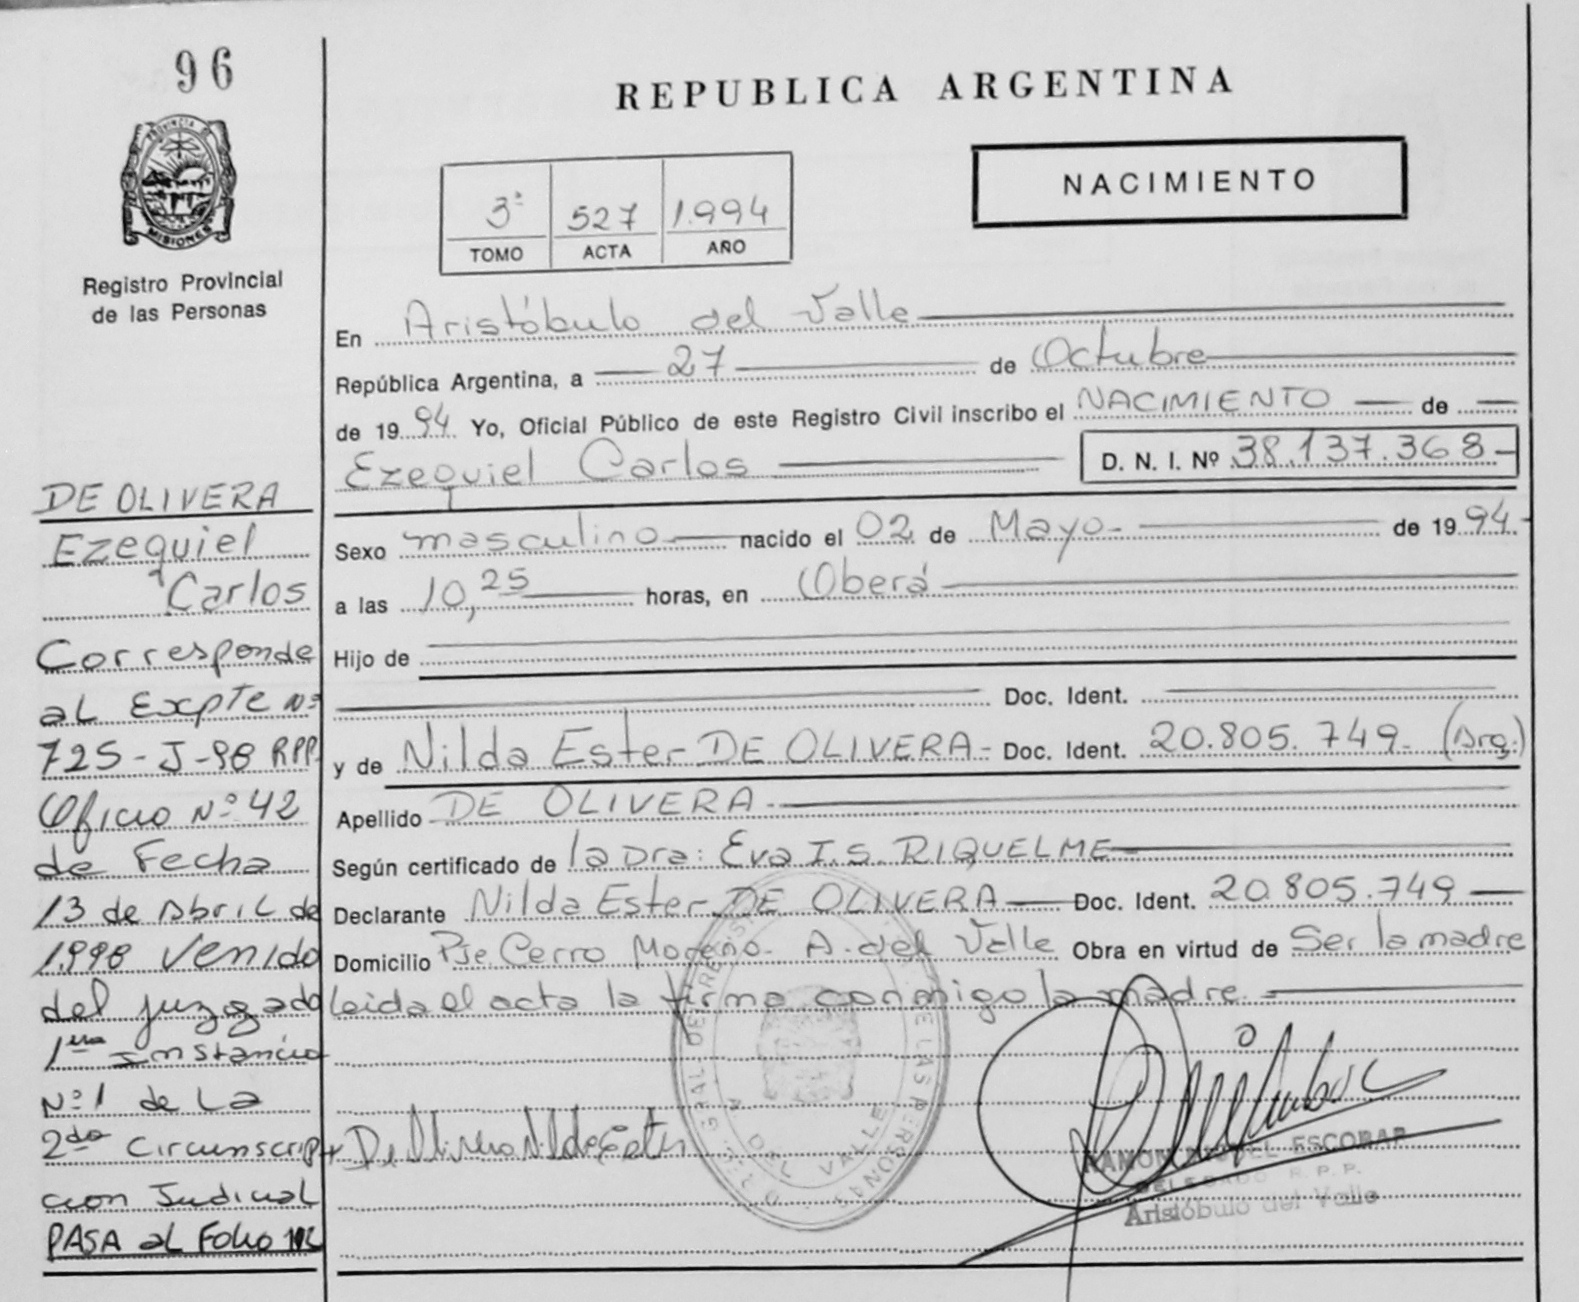 96
REPUBLICA ARGENTINA
NACIMIENTO
PROVINCIA DE
MISIONES
Registro Provincial
de las Personas
3º 527 1.994
TOMO ACTA AÑO
En Aristóbulo del Valle
República Argentina, a 27 de Octubre
de 19 94 Yo, Oficial Público de este Registro Civil inscribo el NACIMIENTO de
Ezequiel Carlos D. N. I. Nº 38.137.368-
Sexo masculino nacido el 02 de Mayo- de 19 94.
a las 10,25 horas, en Oberá
Hijo de
Doc. Ident.
y de Nilda Ester DE OLIVERA- Doc. Ident. 20.805.749- (Arg.)
Apellido DE OLIVERA
Según certificado de la Dra: Eva I.S. RIQUELME
Declarante Nilda Ester DE OLIVERA Doc. Ident. 20.805.749
Domicilio Pje Cerro Moreno- A. del Valle Obra en virtud de Ser la madre
leida el acta la firma conmigo la madre
De Olivera Nilda Ester
RAMON MIGUEL ESCOBAR
DELEGADO R. P. P.
Aristóbulo del Valle
A. DEL VALLE
DE LAS PERSONAS
DE OLIVERA
Ezequiel
Carlos
Corresponde
al Expte Nº
725-J-98 RPP.
Oficio Nº 42
de Fecha
13 de Abril de
1998 Venido
del juzgado
1era Instancia
Nº 1 de La
2da Circunscrip
cion Judicial
PASA al Folio